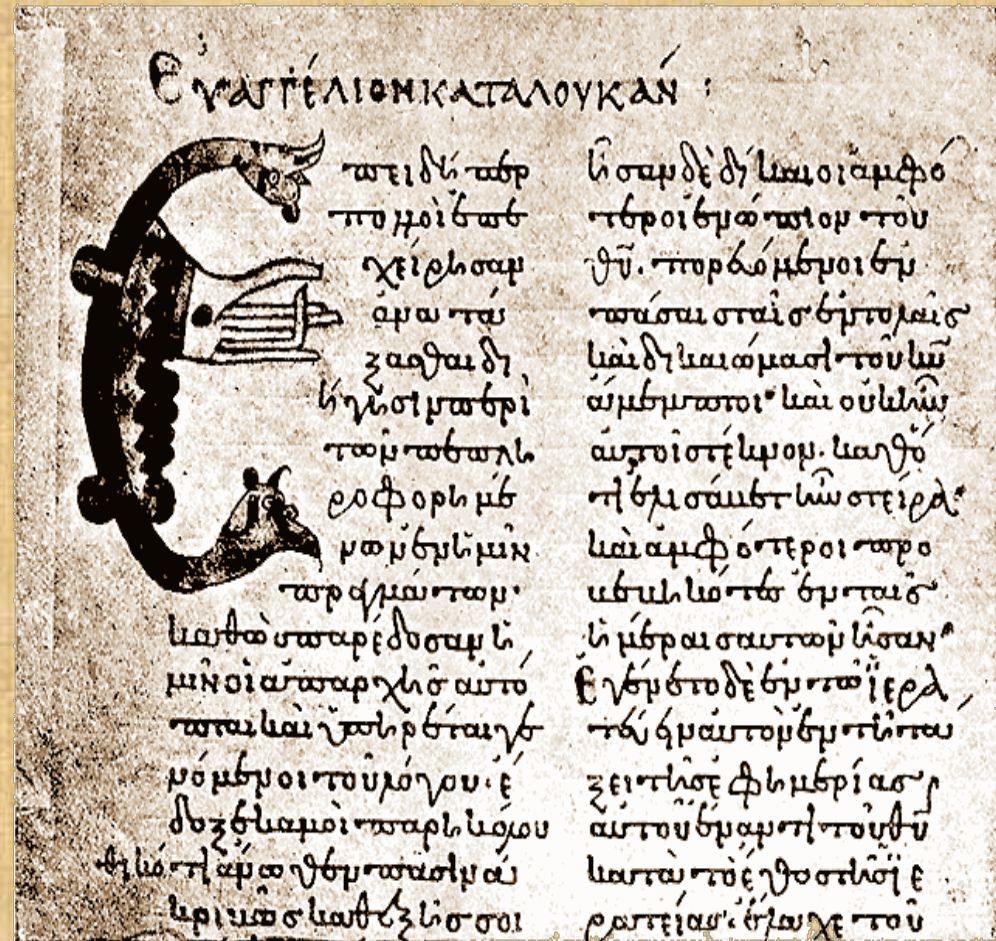 Εὐαγγέλιον κατὰ Λουκάν :
Ἐπειδήπερ
πολλοὶ ἐπε
χείρησαν
ἀνατά
ξασθαι δι
ήγησιν περὶ
τῶν πεπλη
ροφορημέ
νων ἐν ἡμῖν
πραγμάτων·
καθὼς παρέδοσαν ἡ
μῖν οἱ ἀπαρχῆς αὐτό
πται καὶ ὑπηρέται γε
νόμενοι τοῦ λόγου· ἔ
δοξε καμοὶ παρηκολου
θηκότι ἄνωθεν πᾶσιν ἀ
κριβῶς καθεξῆς σοι
ἦσαν δὲ δίκαιοι ἀμφό
τεροι ἐνώπιον τοῦ
θῦ. πορευόμενοι ἐν
πάσαις ταῖς ἐντολαῖς
καὶ δικαιώμασι τοῦ κῦ
ἄμεμπτοι· καὶ οὐκ ἦν
αὐτοῖς τέκνον. καθό
τι ἐλισάβετ ἦν στεῖρα·
καὶ ἀμφότεροι προ
βεβηκότες ἐν ταῖς
ἡμέραις αὐτῶν ἦσαν·
Ἐγένετο δὲ ἐν τῷ ϊερα
τεύειν αὐτὸν ἐν τῇ τά
ξει τῆς ἐφημερίας
αὐτοῦ ἔναντι τοῦ θῦ
κατὰ τὸ ἔθος τῆς ϊε
ρατείας· ἔλαχε τοῦ